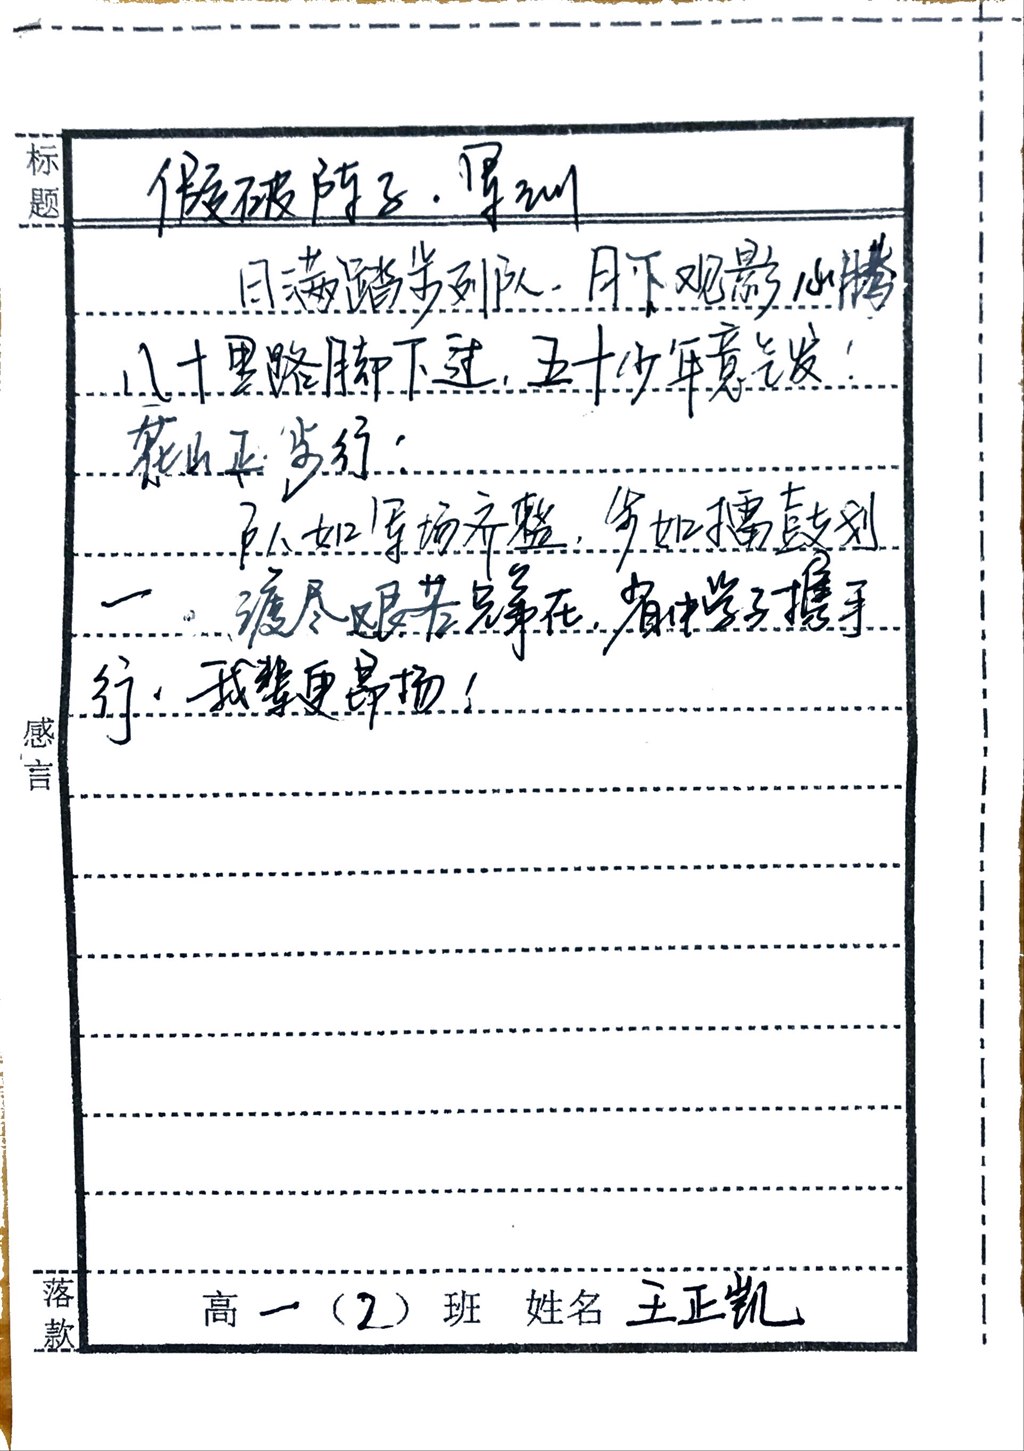 标题
假破阵子·军训
日满踏步列队.月下观影心腾
八十里路脚下过,五十少年意气发!
花山正步行!
队如军场齐整,步如擂鼓划
一.渡尽艰苦兄弟在,省中学子携手
行.我辈更昂扬!
感言
落款
高一(2)班 姓名 王正凯